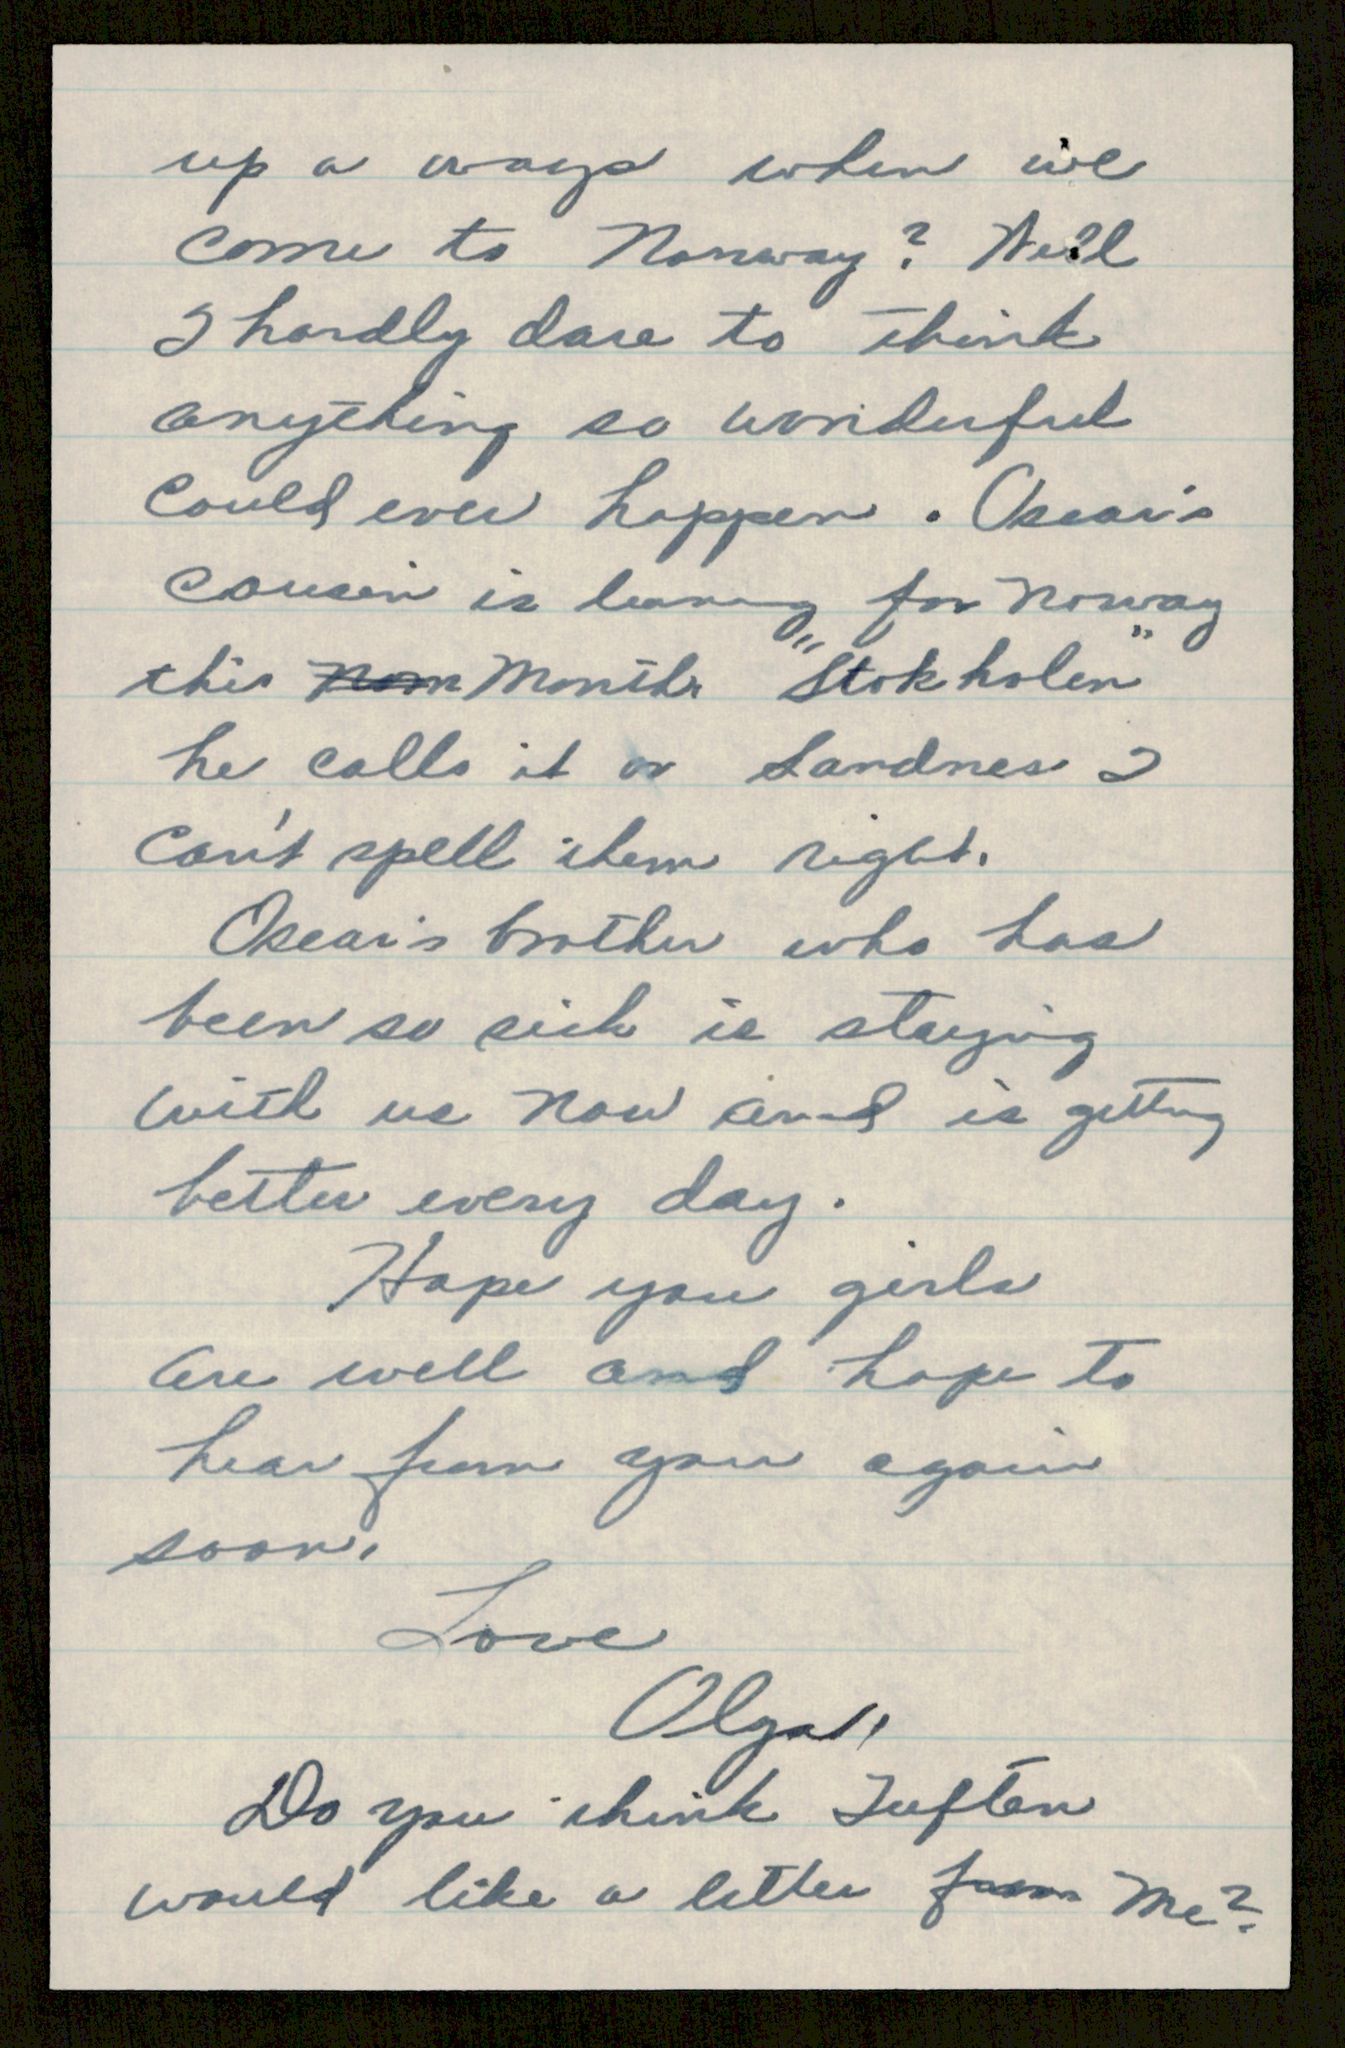 up a ways when we
come to Norway? Well
I hardly dare to think
anything so wonderful
could ever happen. Oscar's
cousin is leaving for Norway
this Month "Stokholen"
he calls it or Sandnes I
can't spell them right.
Oscar's brother who has
been so sick is staying
with us now and is getting
better every day.
Hope you girls
are well and hope to
hear from you again
soon.
Love
Olga
Do you think Tuften
would like a letter from Me?